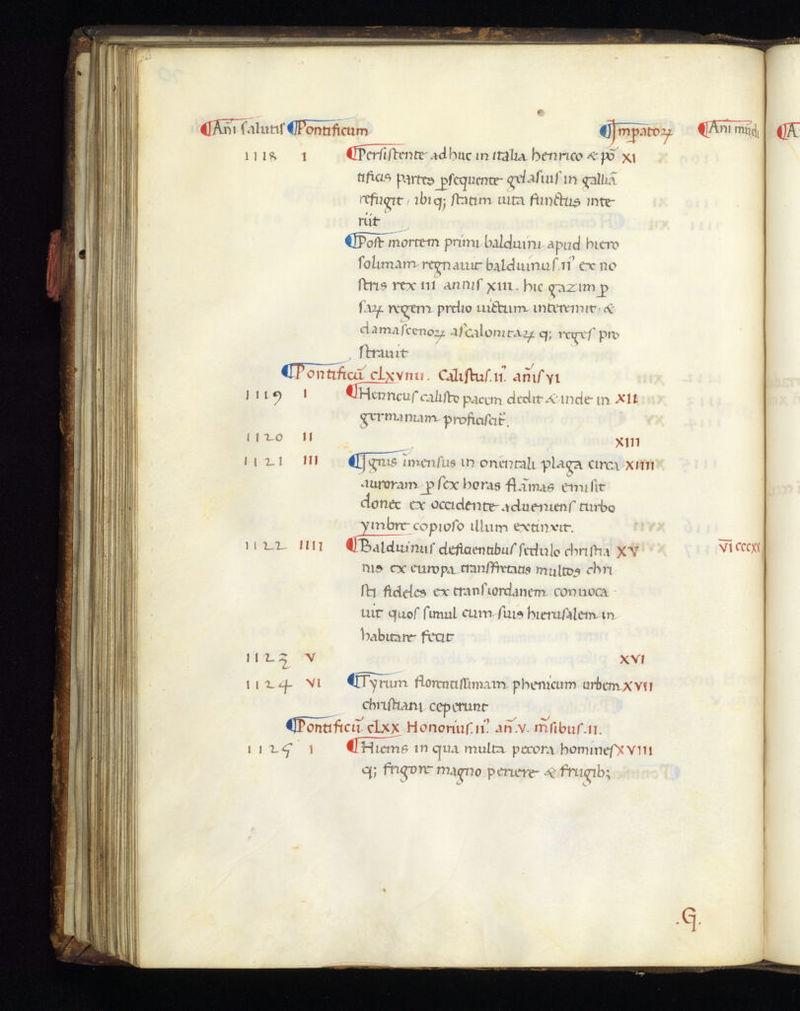 ¶Ani salutis ¶Pontificum ¶Impatoꝝ ¶Ani mūdi ¶A
1118 1 ¶Persistente adhuc in italia henrico & pō XI
tificis partes ꝑsequente gelasius in galliā
refugit: ibiq; statim uita functus inte-
riit
¶Post mortem primi balduini apud hiero
solimam regnauit balduinus .II. ex no
stris rex III annis XIII. hic gazim ꝑ
saꝝ regem prelio uictum interemit: &
damascenoꝝ ascalonitaꝝ q; reges pro
strauit
¶Pontificū clxviiii. Calistus .II. anis VI
1119 I ¶Henricus calisto pacem dedit & inde in XII
germaniam proficiscit̄.
1120 II XIII
1121 III ¶Ignis imensus in orientali plaga circa XIIII
auroram ꝑ sex horas flāmas emisit
donec ex occidente adueniens turbo
ymbre copioso illum extinxit.
1122 IIII ¶Balduinus deficientibus sedulo christia XV VI cccxx
nis ex europa transfretatis multos chri
sti fideles ex transiordanem conuoca
uit quos simul cum suis hierusalem in
habitare fecit
1123 V XVI
1124 VI ¶Tyrum florentissimam phenicum urbem XVII
christiani ceperunt
¶Pontificū clxx Honorius .II. an̄.V. mēsibus .II.
1125 I ¶Hiems in qua multa pecora homines XVIII
q; frigore magno periere & frugib;
.G.